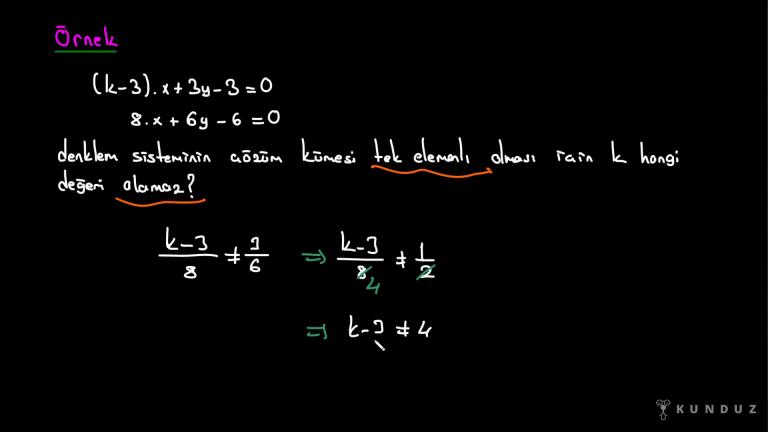 Örnek
(k-3).x+3y-3=0
8.x+6y-6=0
denklem sisteminin çözüm kümesi tek elemanlı olması için k hangi
değeri olamaz?
k-3/8 ≠ 3/6 ⇒ k-3/8 ≠ 1/2
4
⇒ k-3 ≠ 4
KUNDUZ